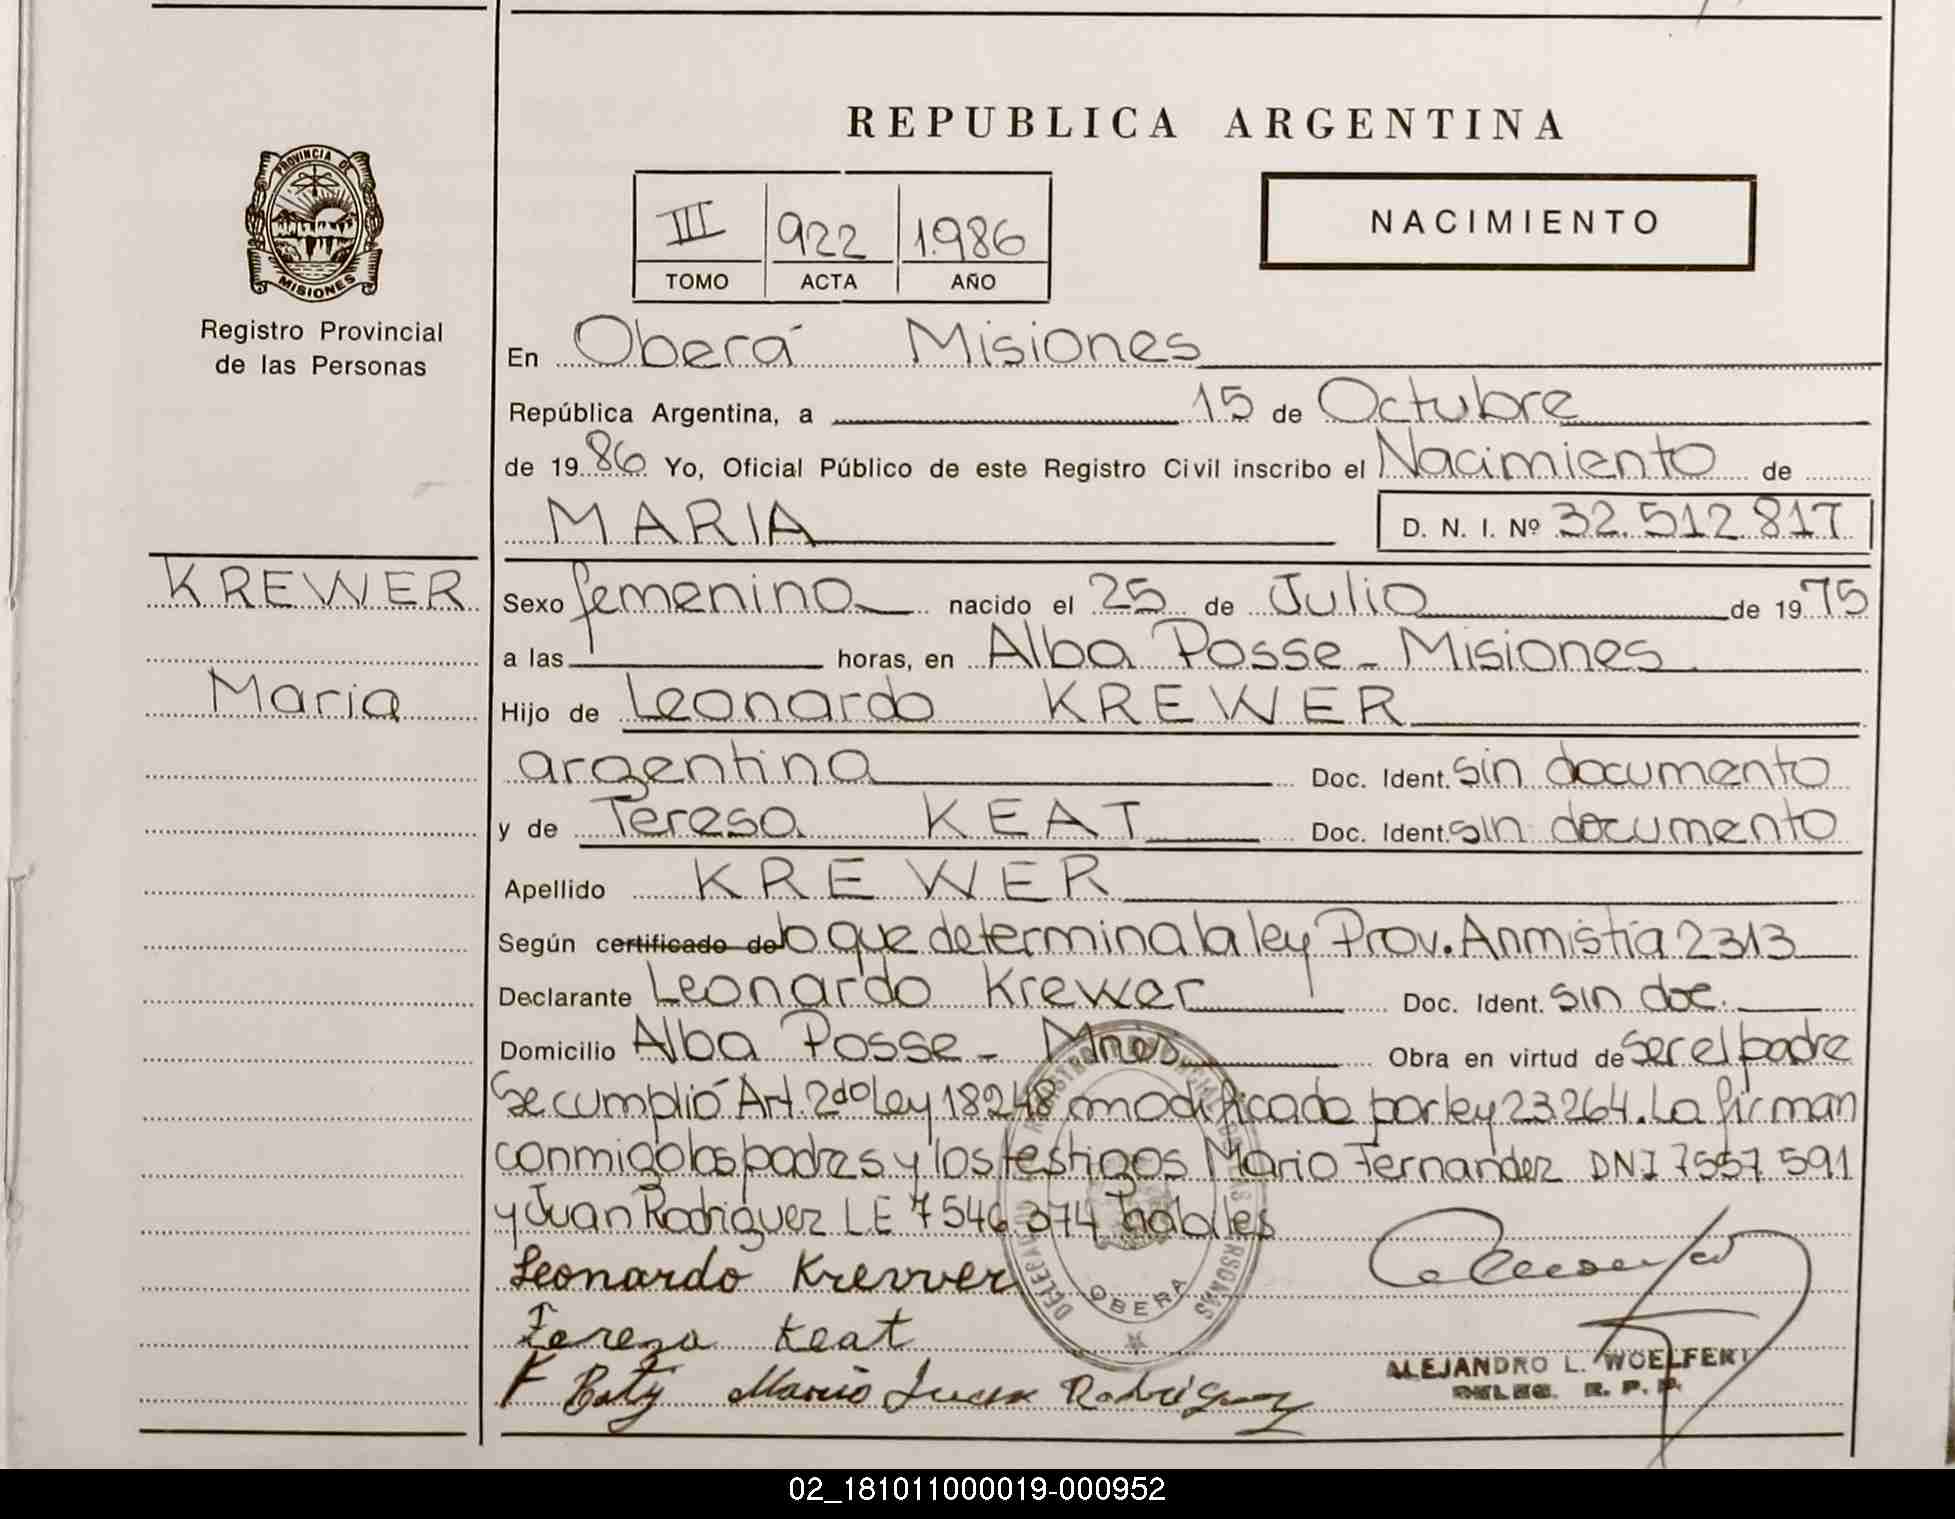 REPUBLICA ARGENTINA
PROVINCIA DE
MISIONES
Registro Provincial
de las Personas
III 922 1.986
TOMO ACTA AÑO
NACIMIENTO
En Oberá Misiones
República Argentina, a 15 de Octubre
de 19 86 Yo, Oficial Público de este Registro Civil inscribo el Nacimiento de
MARIA D. N. I. Nº 32.512.817
KREWER
Maria
Sexo femenino nacido el 25 de Julio de 19 75
a las horas, en Alba Posse - Misiones
Hijo de Leonardo KREWER
argentina Doc. Ident. sin documento
y de Teresa KEAT Doc. Ident. sin documento
Apellido KREWER
Según certificado de lo que determina la ley Prov. Anmistía 2313
Declarante Leonardo Krewer Doc. Ident. sin doc.
Domicilio Alba Posse - Mnes. Obra en virtud de ser el padre
Se cumplió Art. 2do ley 18248 modificado por ley 23.264. La firman
conmigo los padres y los testigos Mario Fernandez DNI 7557 591
y Juan Rodriguez LE 7546 374 habiles
Leonardo Krewer
Teresa Keat
Mario Juan Rodriguez
OBERA
ALEJANDRO L. WOELFERT
DELEG. R. P. P.
02_181011000019-000952